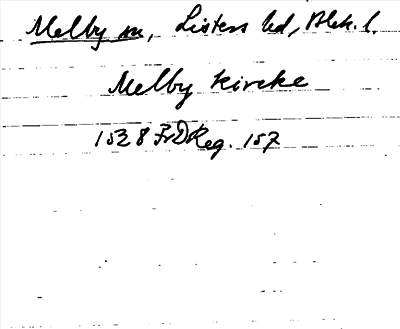 Melby sn, Listers hd, Blek. l.
Melby kircke
1528 FrDReg. 157